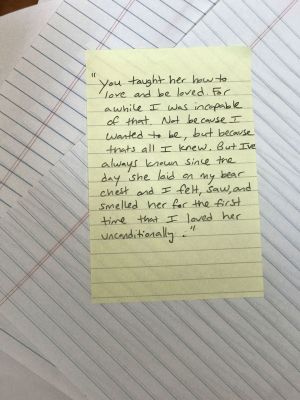 "You taught her how to
love and be loved. For
awhile I was incapable
of that. Not because I
wanted to be, but because
thats all I knew. But I've
always known since the
day she laid on my bear
chest and I felt, saw, and
smelled her for the first
time that I loved her
unconditionally."